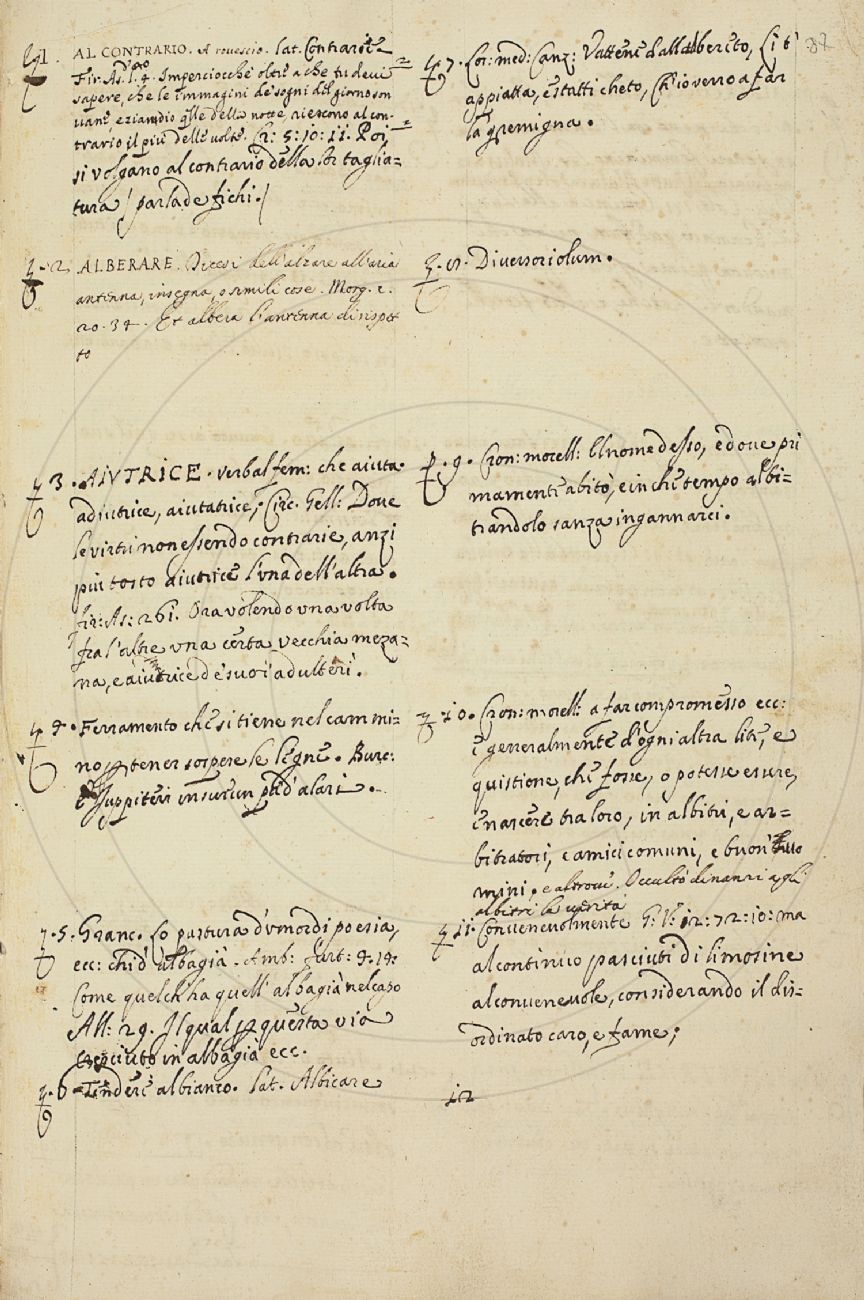 1. AL CONTRARIO. A rovescio. lat. Contrarie
Fir. As. 4. Imperciocchè oltre a che tu devi
sapere, che le immagini de' sogni del giorno son
vane, eziamdio qlle della notte, riescono al con-
trario il più delle volte. Cr: 5: 10: 11. Poi
si volgano al contrario della lor taglia=
tura / parla de fichi. /
2. ALBERARE. Dicesi dell'alzare all'aria
antenna, insegna, o simili cose. Morg. c.
20. 34. Et albera l'antenna di rispet
to
3. AIVTRICE. verbal fem: che aiuta.
adiutrice, aiutatrice, Circ. Gell: Dove
le virtù non essendo contrarie, anzi
più tosto aiutrice l'vna dell'altra.
fir: As: 261. Ora volendo vna volta
fra l'altre vna certa vecchia meza=
na, e aiutrice de' suoi adulteri.
4. Ferramento che si tiene nel cammi=
no p tener sospese le legne. Burc:
Juppiter in sur un par d'alari.
5. Granc. Lo pustura d'vmor di poesia,
ecc: chi d'albagia. Amb: furt: 4. 14:
Come quelch ha quell' albagia nel capo
All: 29. Il qual p questa via
cresciuto in albagia ecc.
6. Tendere al bianco. lat. Albicare
87
7. Lor: med: Canz: Vattene dall'albereto, Lì t'
appiatta, e statti cheto, Ch'io verrò a far
la gremigna.
8. Diversoriolum.
9. Cron: morell: El nome d'esso, e dove pri
mamente abitò, e in che tempo albi=
trandolo sanza ingannarci.
10. Cron: morell: a far compromesso ecc:
e generalmente d'ogni altra lite, e
quistione, che fosse, o potesse essere,
e nascere tra loro, in albitri, e ar=
bitratori, e amici comuni, e buoni uo
mini, e altrove. Occultò dinanzi agli
albitri la verità
11. Convenevolmente G: V: 12: 72: 10: ma
al continuo pasciuti di limosine
al convenevole, considerando il dis=
ordinato caro, e fame;
12